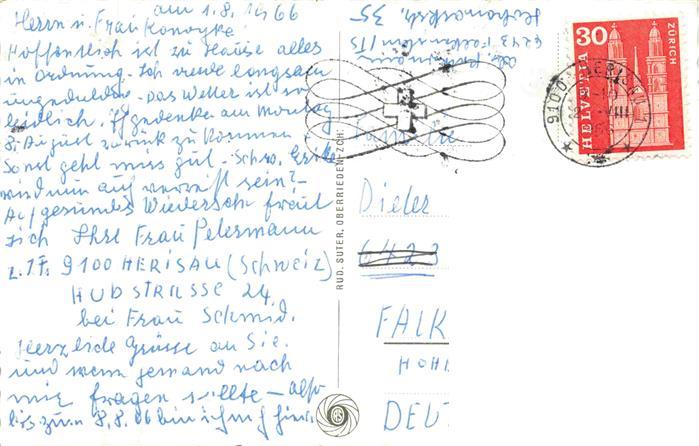 am 1.8.1966
Herrn u. Frau
Hoffentlich ist zu Hause alles
in Ordnung. Ich werde langsam
ungeduldig. Das Wetter ist so
leidlich. Ich gedenke am Montag
8. August zurück zu kommen
Sonst geht mirs gut. Schw.
wird nun auf sein?
Auf gesundes Wiedersehn freut
sich Ihre Frau Petermann
z. Zt. 9100 HERISAU (Schweiz)
HUBSTRASSE 24.
bei Frau Schmid.
Herzliche Grüsse an Sie.
und wenn jemand nach
mir fragen sollte – also
bis zum 8.8.66 bin ich noch hier.
RUD. SUTER, OBERRIEDEN-ZCH.
35
6243 Falkenstein/Ts
Familie
Dieter
6423
FALK
HOH
DEU
30
HELVETIA
ZÜRICH
9100 HERISAU
VIII